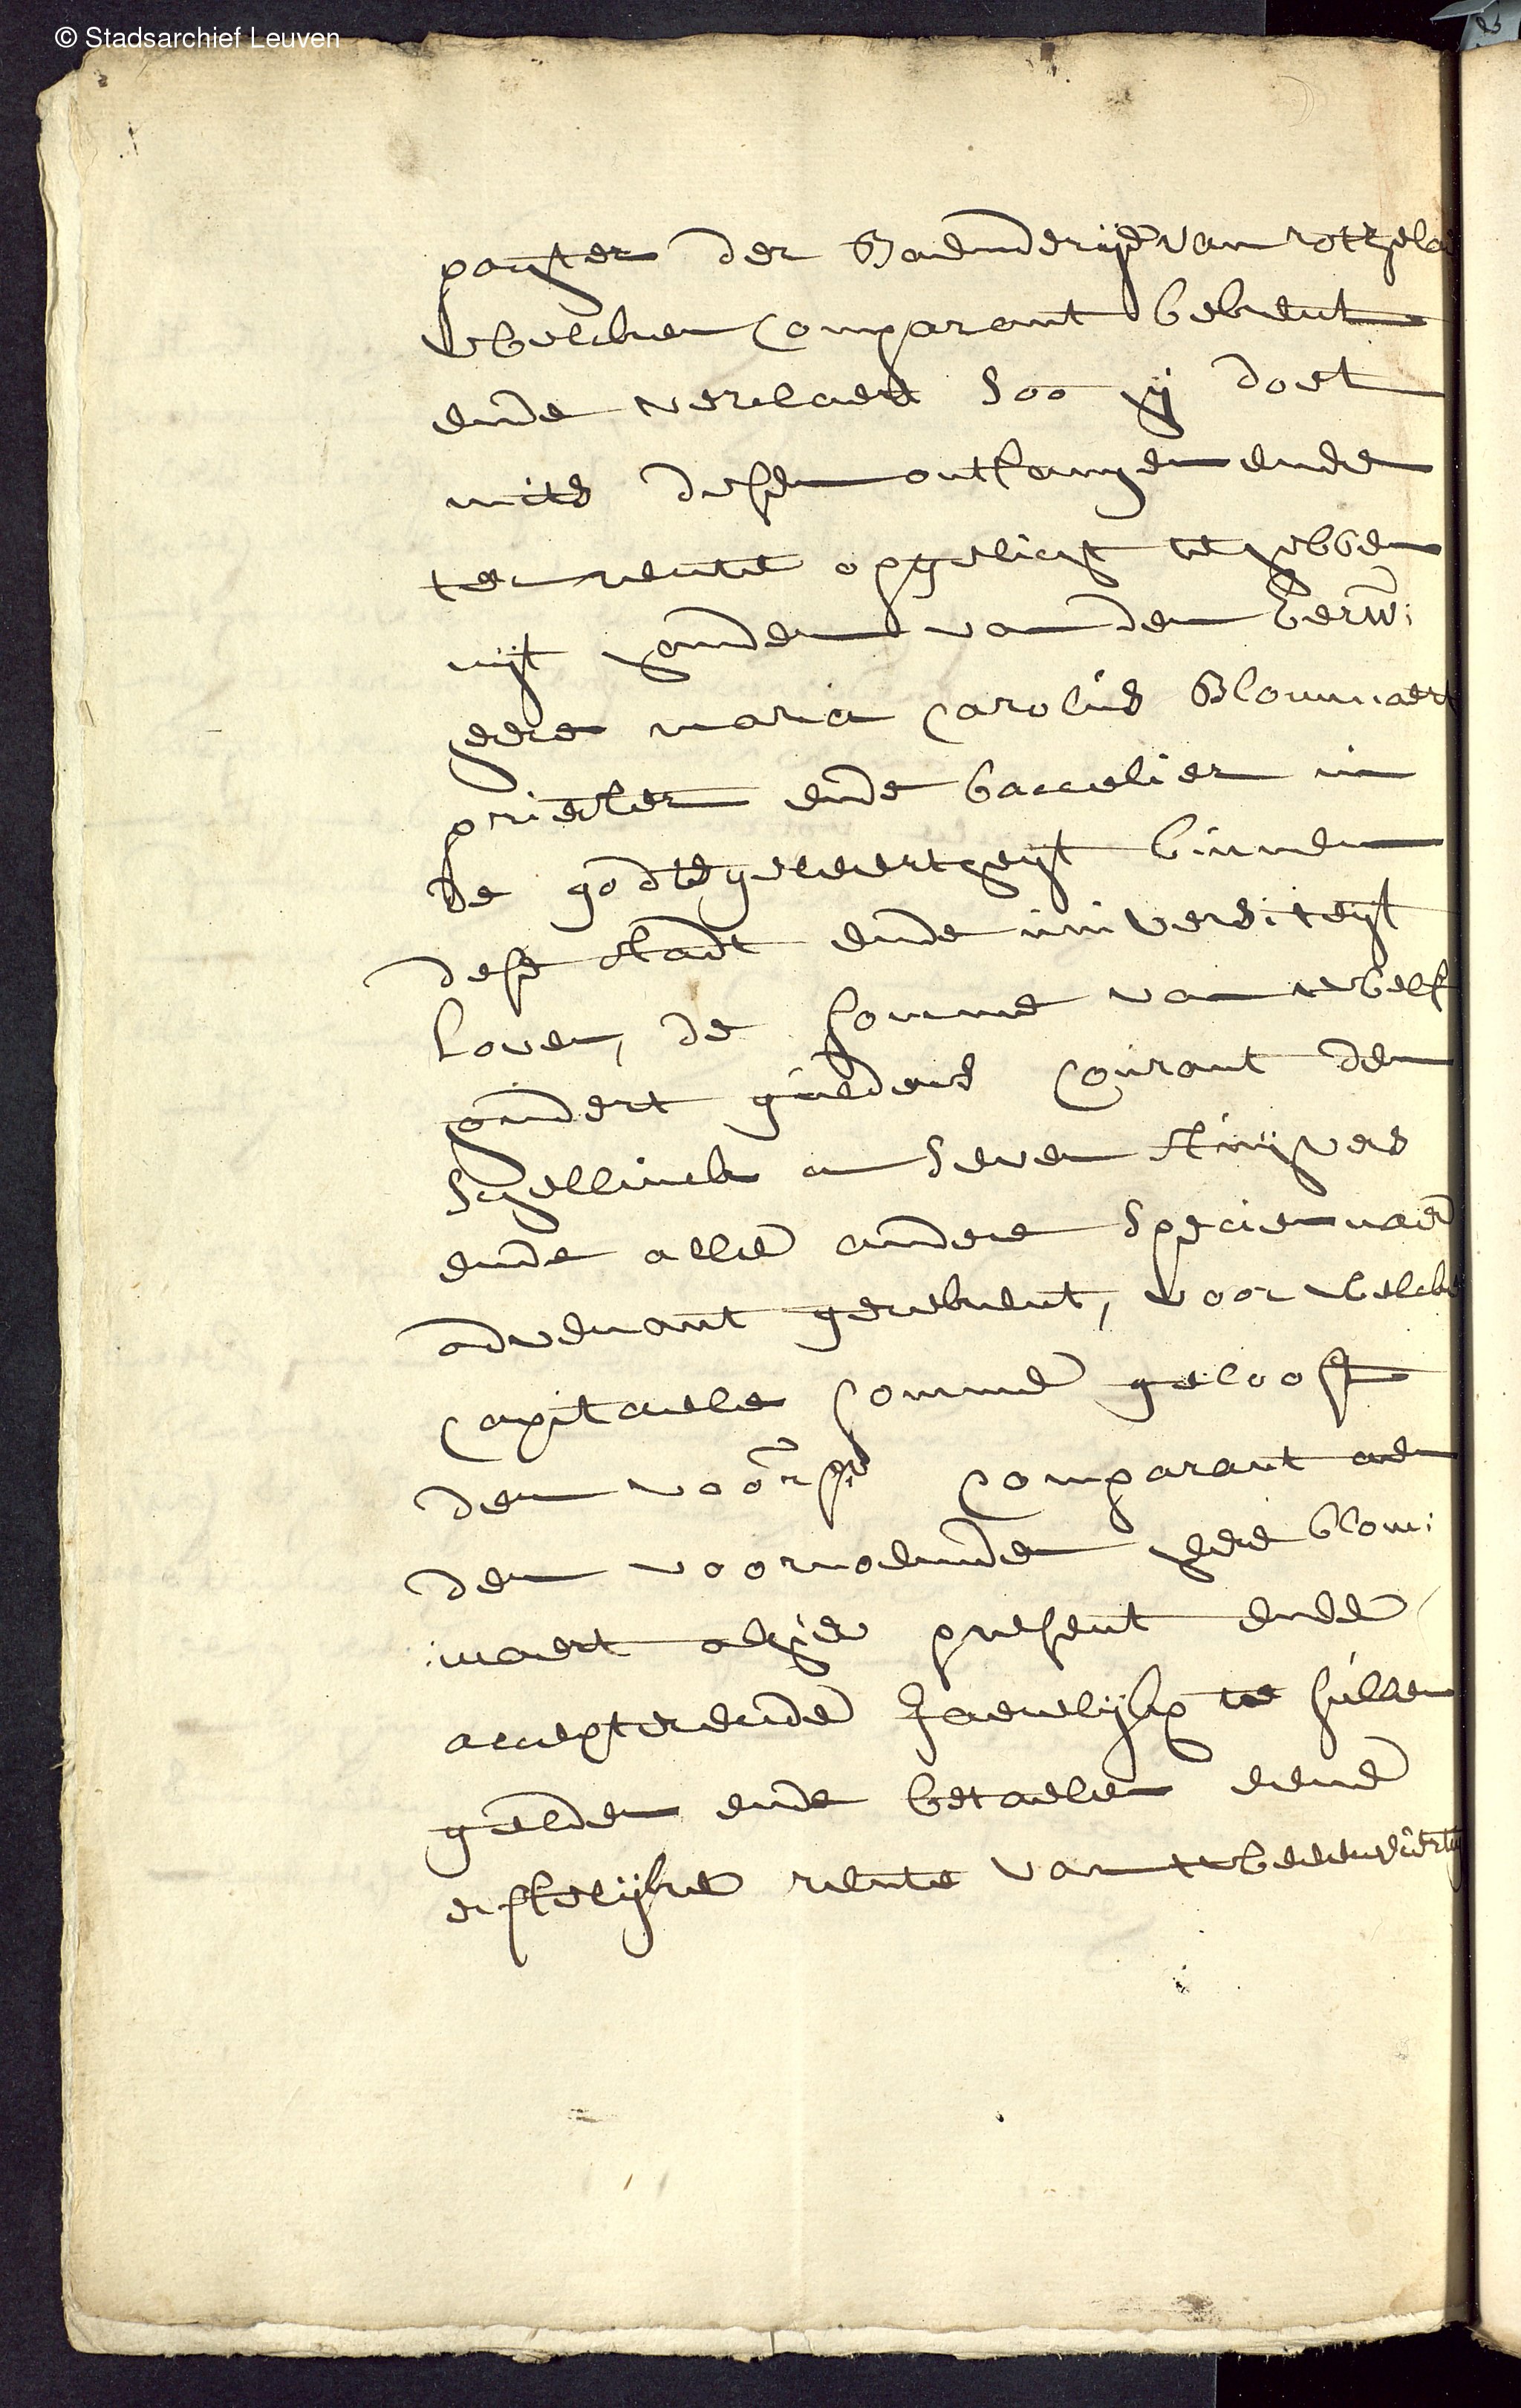 © Stadsarchief Leuven
pachter der Baenderije van rotzelae
welcken Comparant bekent
ende verclaert soo hij doet
mits desen ontfangen ende
ter rente opgelicht te hebben
uijt handen van den Eerw:
heere maria Carolus Blommaert
priester ende baccelier in
de godtsgeleertheijt binnen
dese stadt ende universiteijt
loven, de somme van twelf
hondert guldens Courant den
schellinck a seven stuijvers
ende alle andere specien naer
advenant gerekent, voor welcke
capitaele somme gelooft
den voors. Comparant aen
den voornoemden heere blom:
:maert alhier present ende
accepterende Jaerelijkx te sullen
gelden ende betaelen eene
erffelijke rente van tweeenviertig